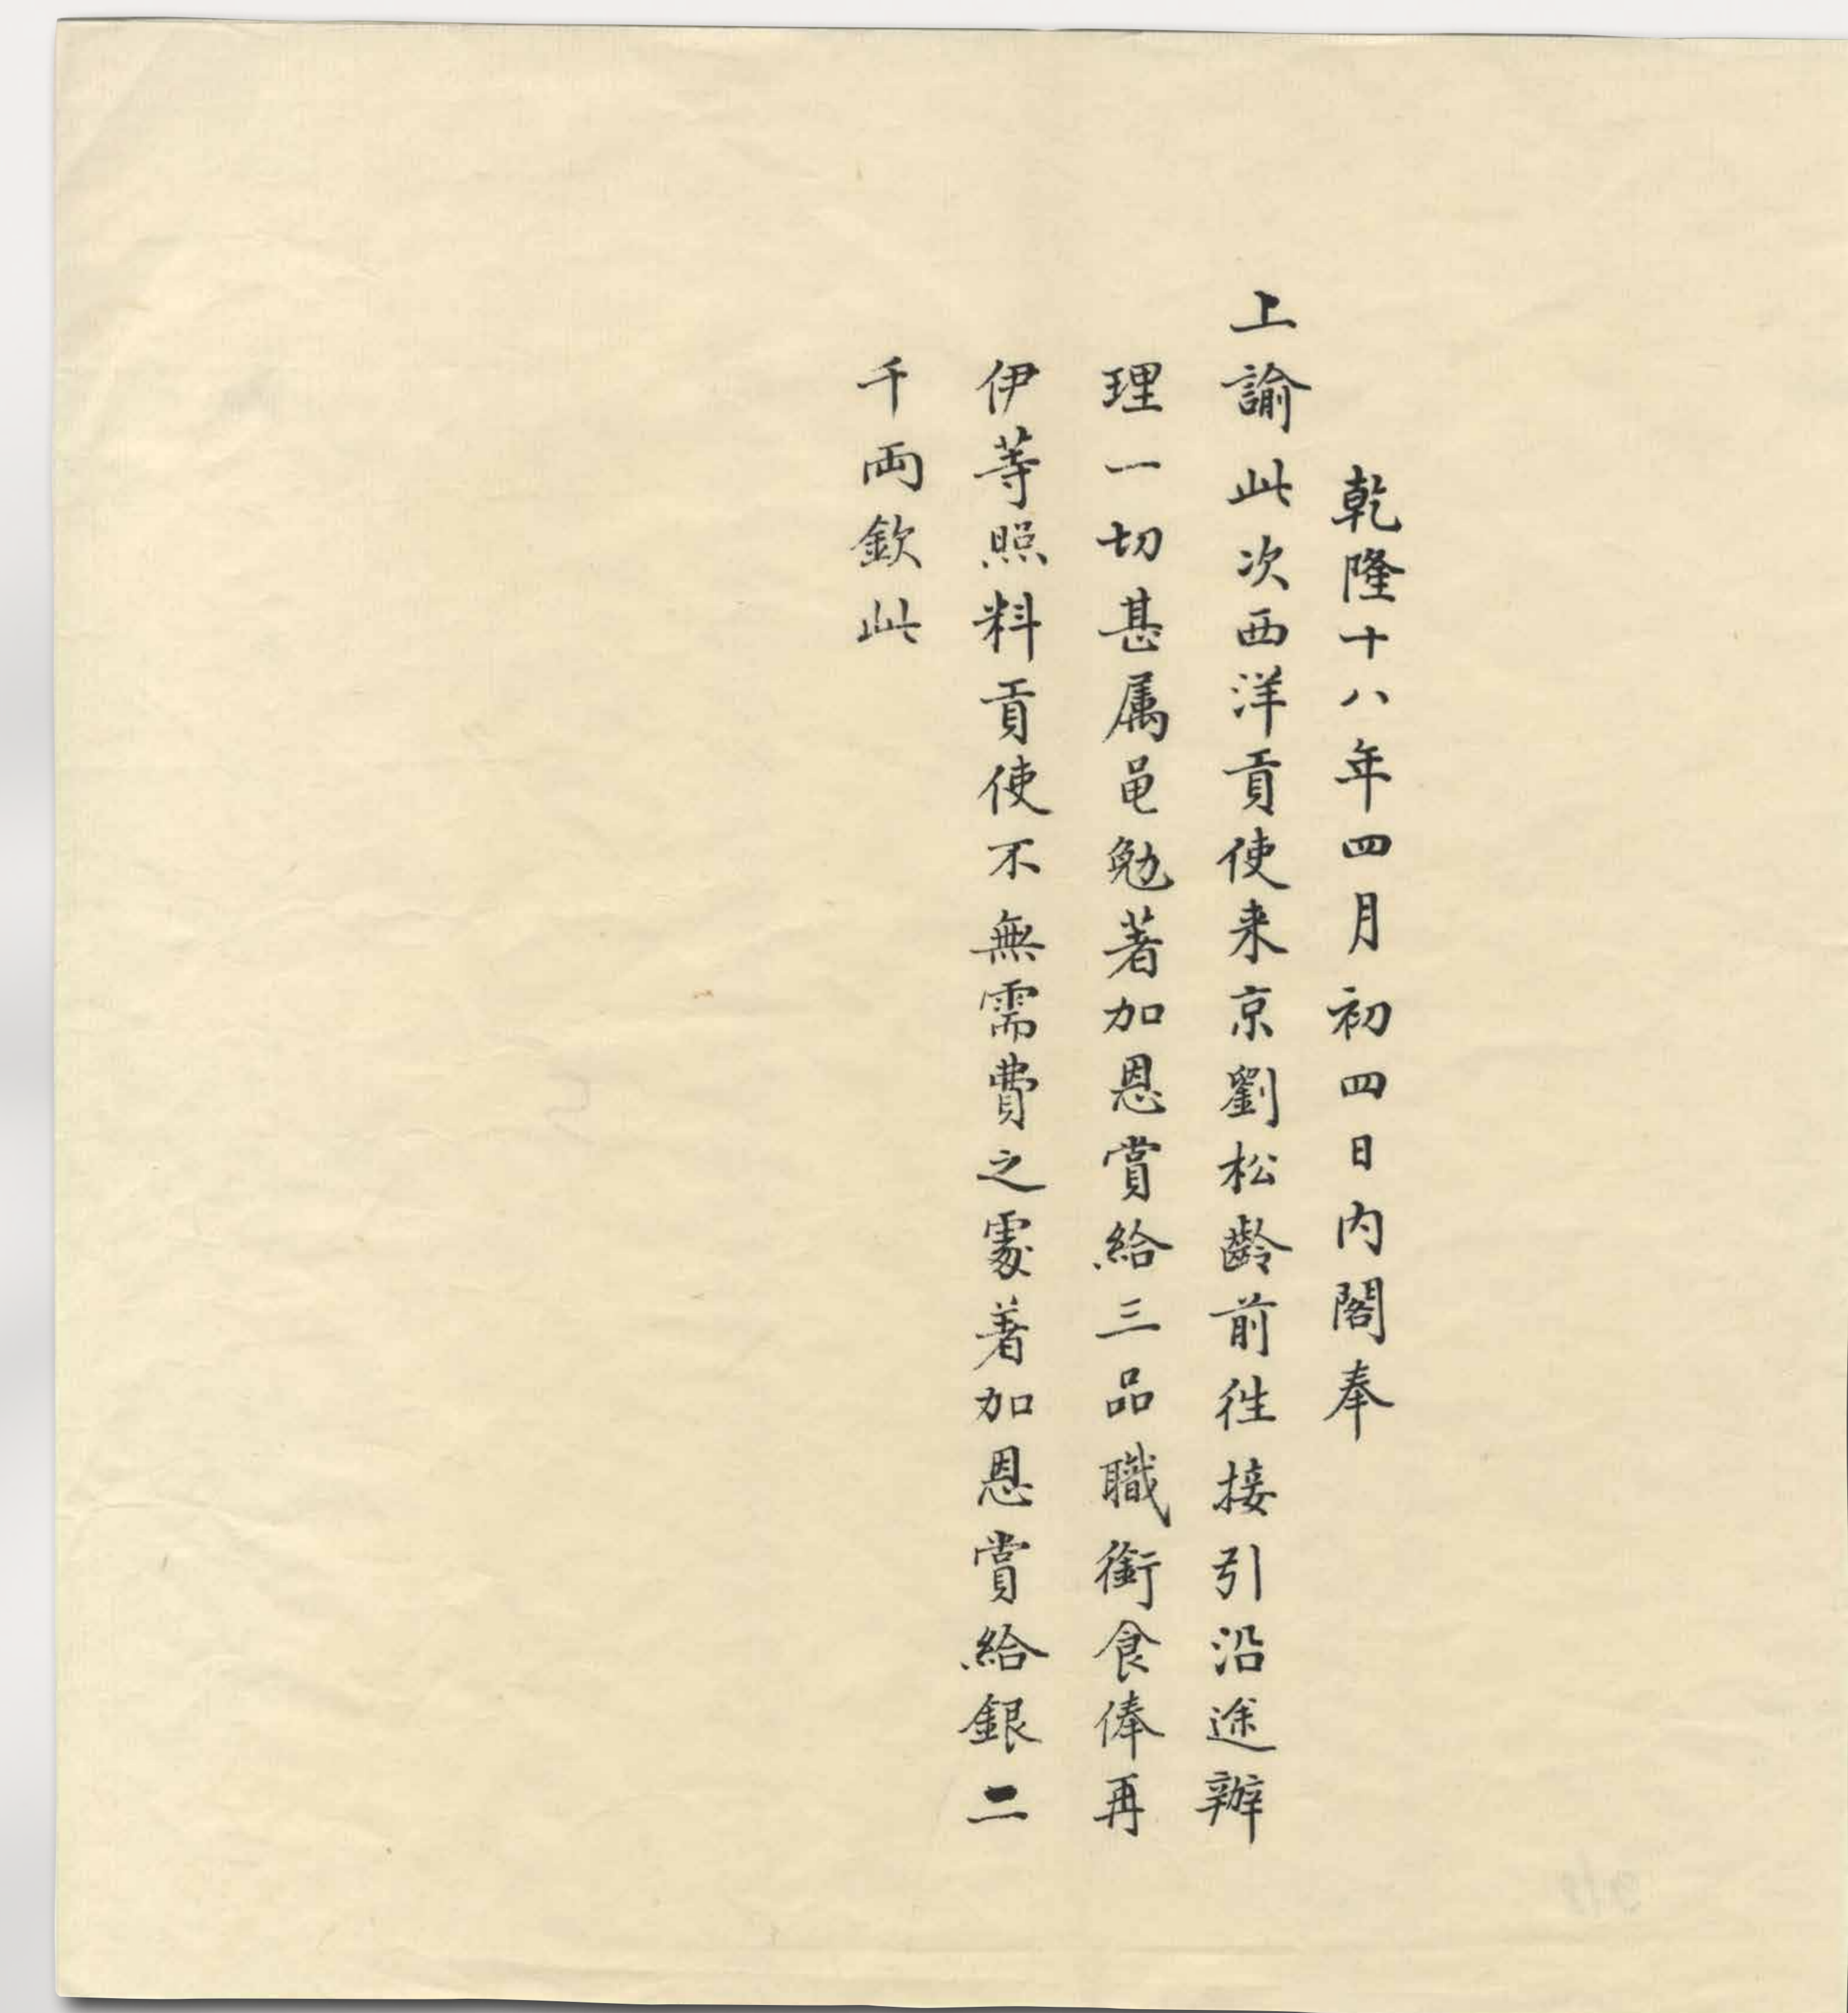 乾隆十八年四月初四日内閣奉
上諭此次西洋貢使来京劉松齡前徃接引沿途辦
理一切甚属黾勉著加恩賞給三品職銜食俸再
伊等照料貢使不無需費之處著加恩賞給銀二
千両欽此